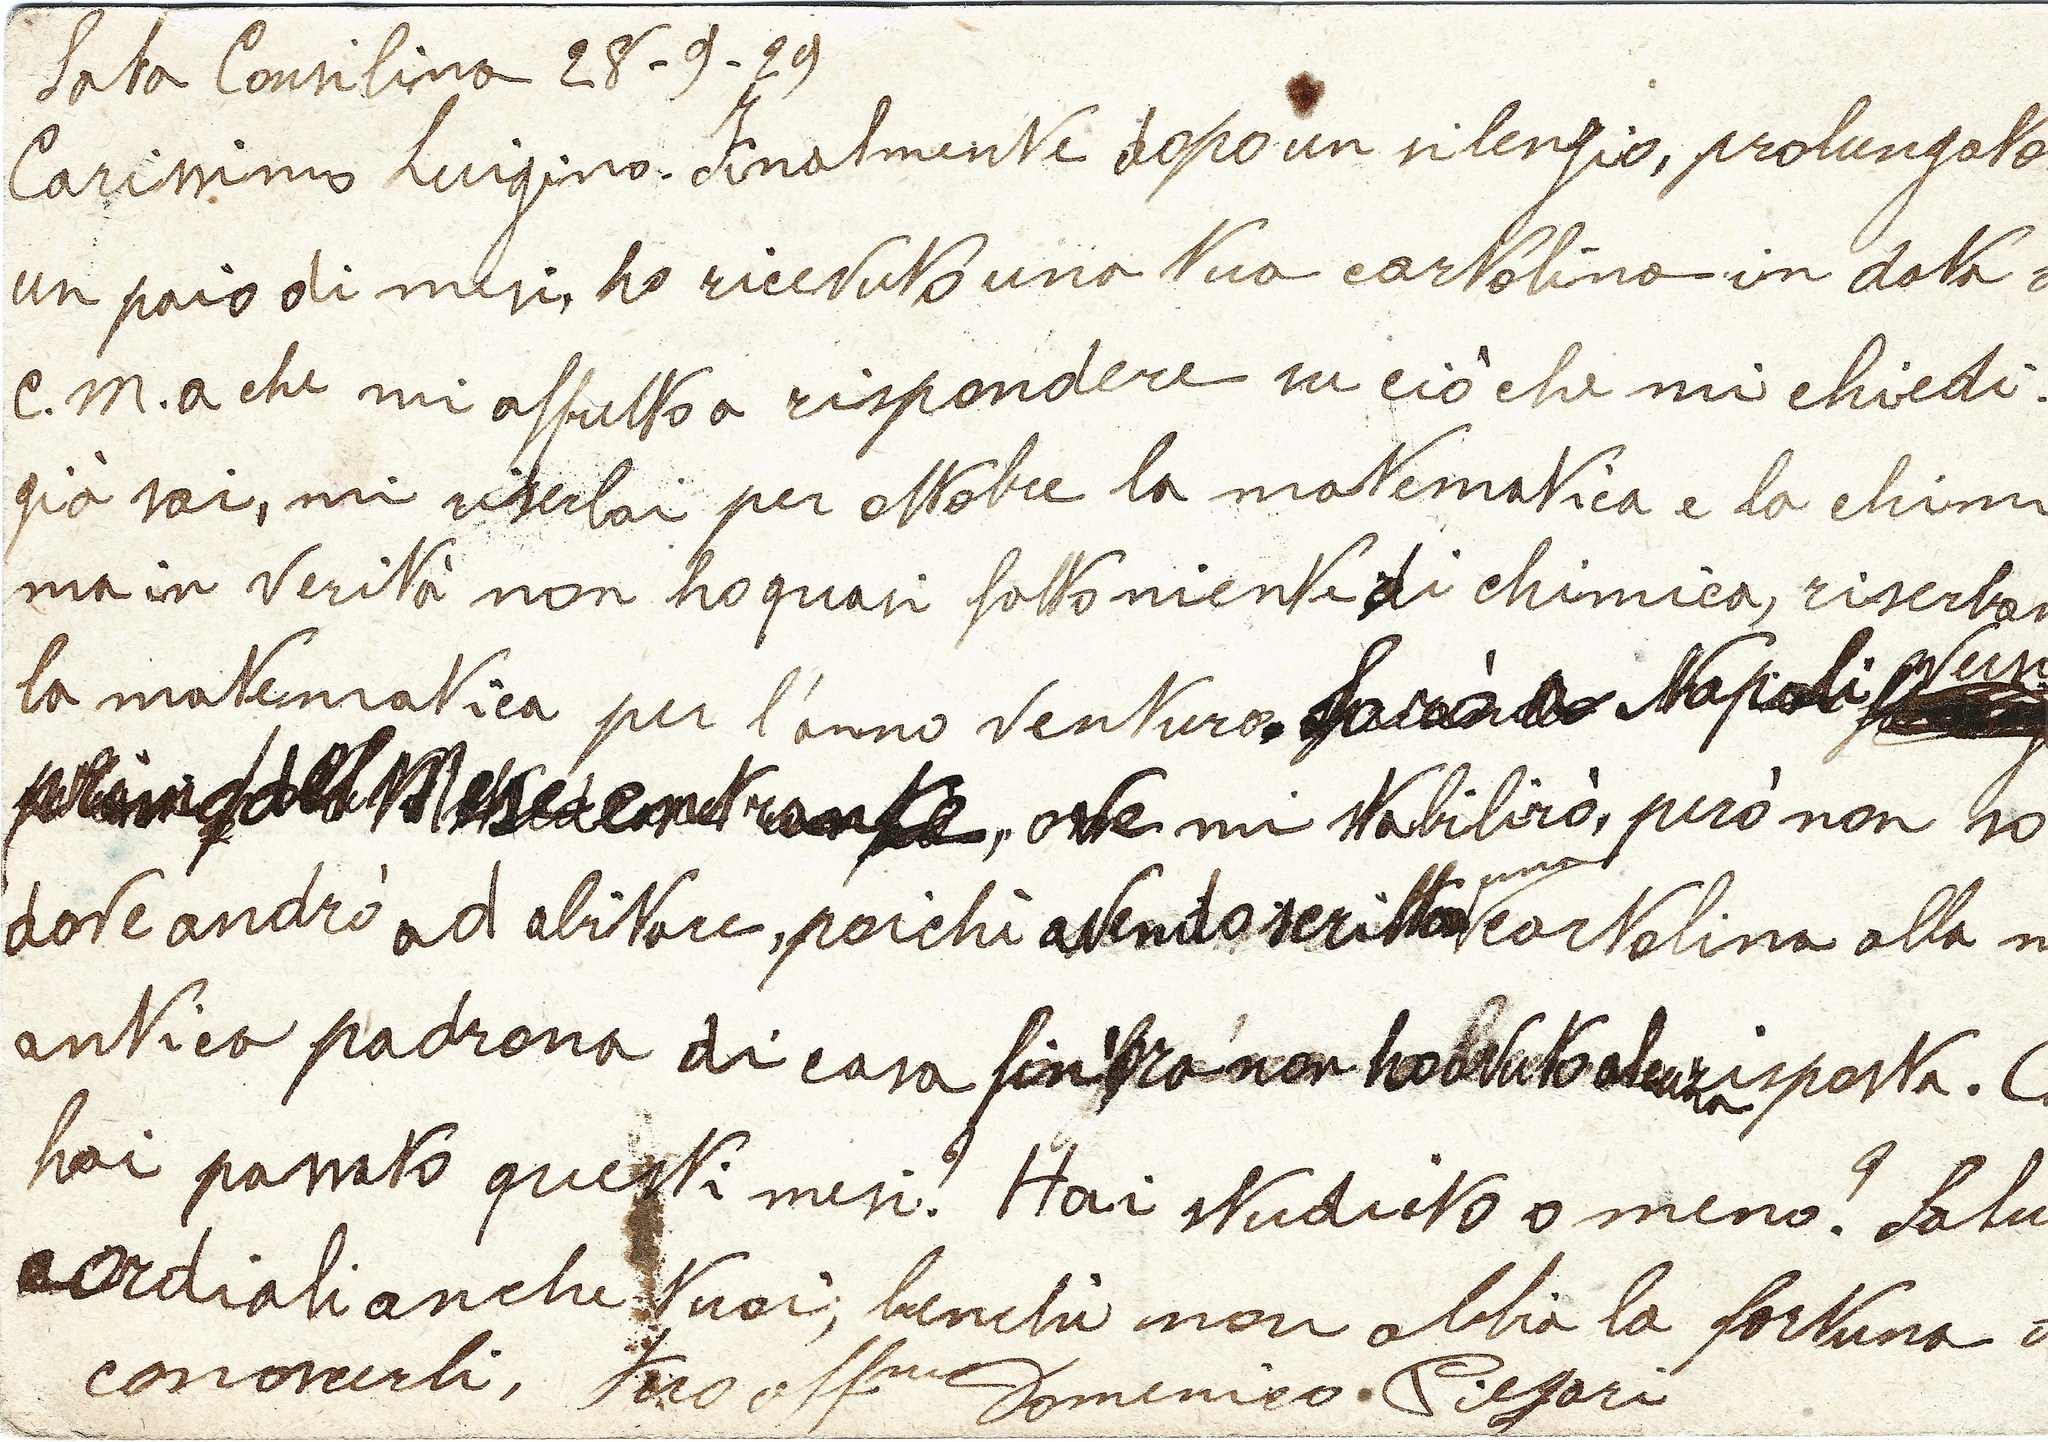 Sala Consilina 28-9-29
Carissimo Luigino. Finalmente dopo un silenzio, prolungato
un paio di mesi, ho ricevuto una tua cartolina in data
C. M. a che mi affretto a rispondere su ciò che mi chiedi.
già sai, mi riserbai per ottobre la matematica e la chimi
ma in verità non ho quasi fatto niente di chimica, riserban
la matematica per l'anno venturo. Sarò a Napoli
prima del Mese entrante, ove mi stabilirò, però non so
dove andrò ad abitare, poichè avendo scritto una cartolina alla m
antica padrona di casa fin'ora non ho avuto alcuna risposta. C
hai passato questi mesi? Hai studiato o meno? Salu
cordiali anche tuoi, benchè non abbia la fortuna d
conoscerli, tuo aff.mo Domenico Piegari